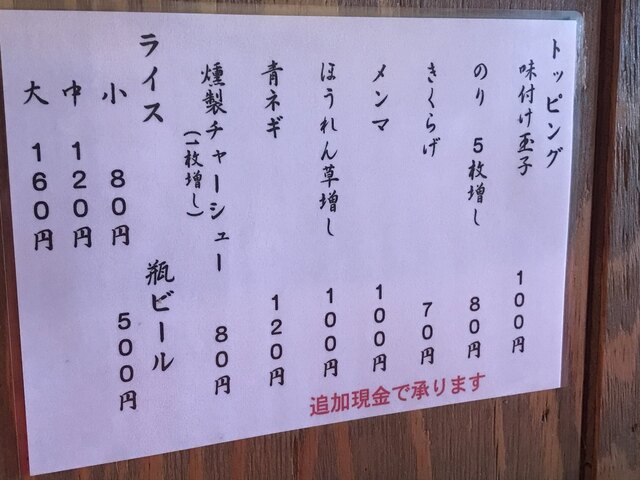 トッピング
味付け玉子 100円
のり 5枚増し 80円
きくらげ 70円
メンマ 100円
ほうれん草増し 100円
青ネギ 120円
燻製チャーシュー 80円
(1枚増し)
ライス
小 80円
中 120円
大 160円
瓶ビール
500円
追加現金で承ります